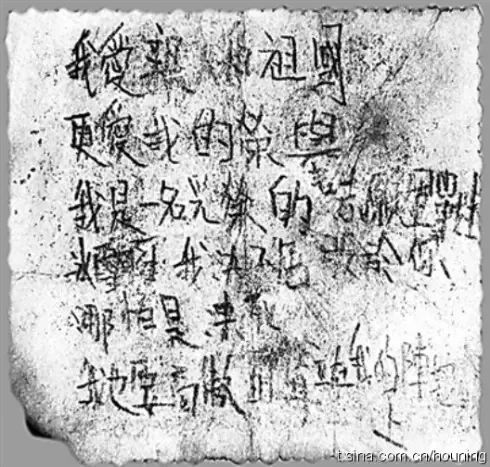 我愛親 和祖國
更愛我的榮與
我是一名光榮的志願
冰雪啊 我決不屈 於你
哪怕是凍死
我也要高傲 立在我的陣地
上
t.sina.com.cn/houning